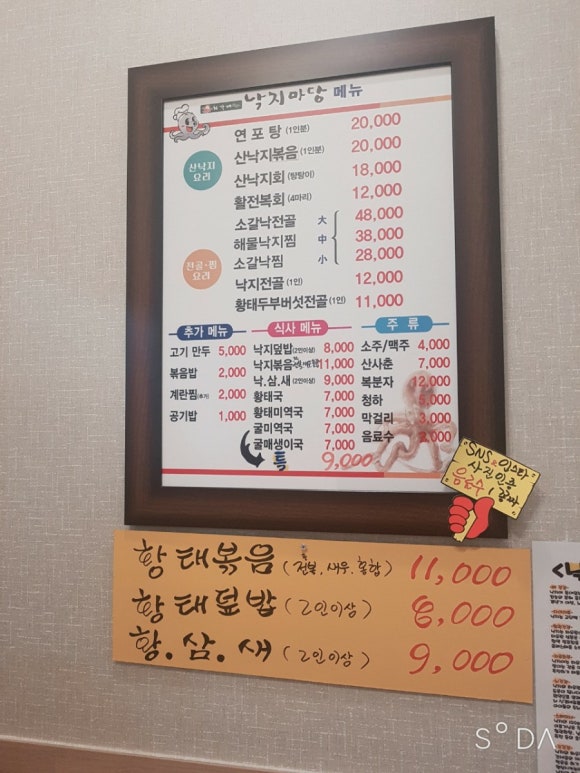 낙지마당 메뉴
산낙지 요리
연포탕 (1인분) 20,000
산낙지볶음 (1인분) 20,000
산낙지회 (탕탕이) 18,000
활전복회 (4마리) 12,000
전골·찜 요리
소갈낙전골 大 48,000
해물낙지찜 中 38,000
소갈낙찜 小 28,000
낙지전골 (1인) 12,000
황태두부버섯전골 (1인) 11,000
추가 메뉴
고기 만두 5,000
볶음밥 2,000
계란찜 (추가) 2,000
공기밥 1,000
식사 메뉴
낙지덮밥 (2인이상) 8,000
낙지볶음 11,000
낙,삼,새 (2인이상) 9,000
황태국 7,000
황태미역국 7,000
굴미역국 7,000
굴매생이국 7,000
특 9,000
주 류
소주/맥주 4,000
산사춘 7,000
복분자 12,000
청하 5,000
막걸리 3,000
음료수 2,000
"SNS, 인스타"
사진인증
음료수 1
황태볶음 (전복, 새우, 홍합) 11,000
황태덮밥 (2인이상) 8,000
황.삼.새 (2인이상) 9,000
SODA